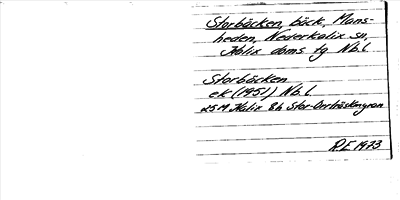 Storbäcken, bäck, Mons-
heden, Nederkalix sn,
Kalix doms tg Nb.l.
Storbäcken
ek (1951) Nb.l.
25M Kalix 8h Stor-Orrträskmyran
R.E 1973